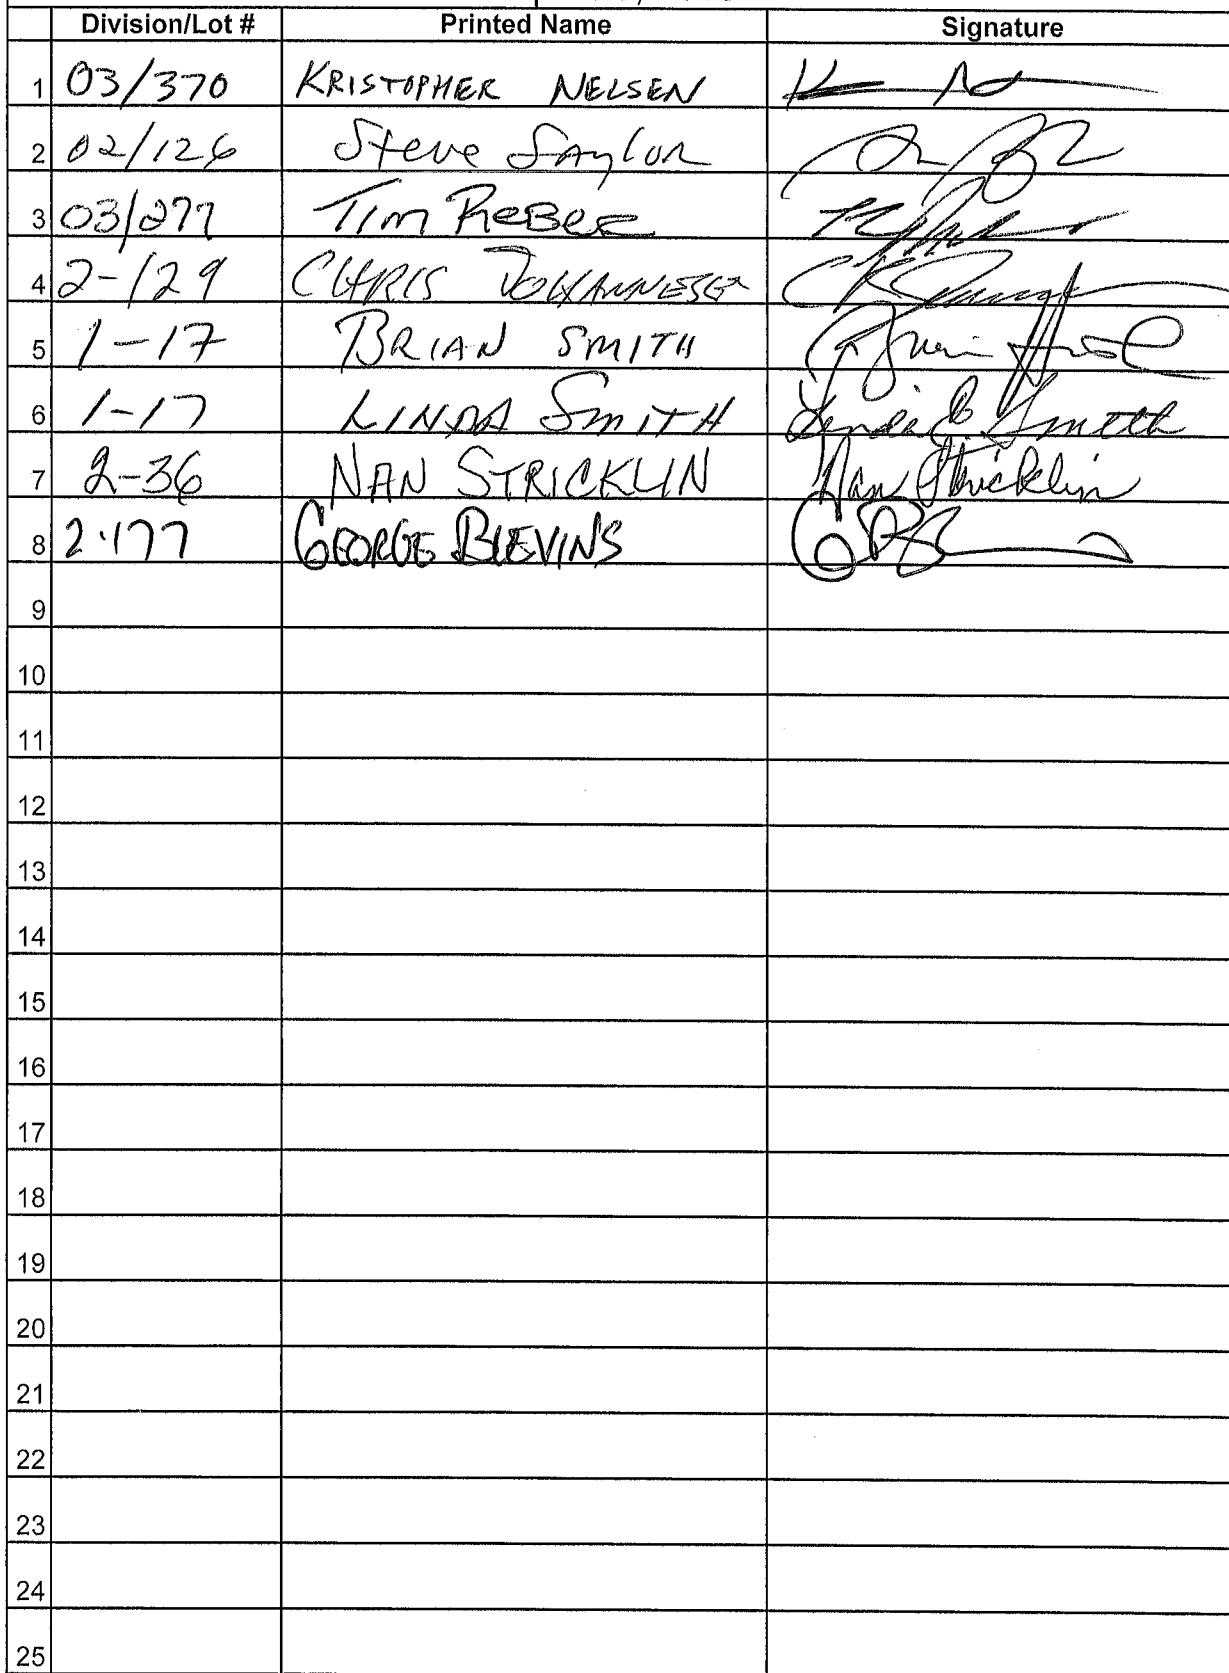 Division/Lot # Printed Name Signature
1 03/370 KRISTOPHER NELSEN
2 02/126 Steve Saylor
3 03/277 Tim ReBer
4 2-129 CHRIS
5 1-17 BRIAN SMITH
6 1-17 LINDA SMITH Linda Smith
7 2-36 NAN STRICKLIN Nan Stricklin
8 2·177 GEORGE BLEVINS
9
10
11
12
13
14
15
16
17
18
19
20
21
22
23
24
25